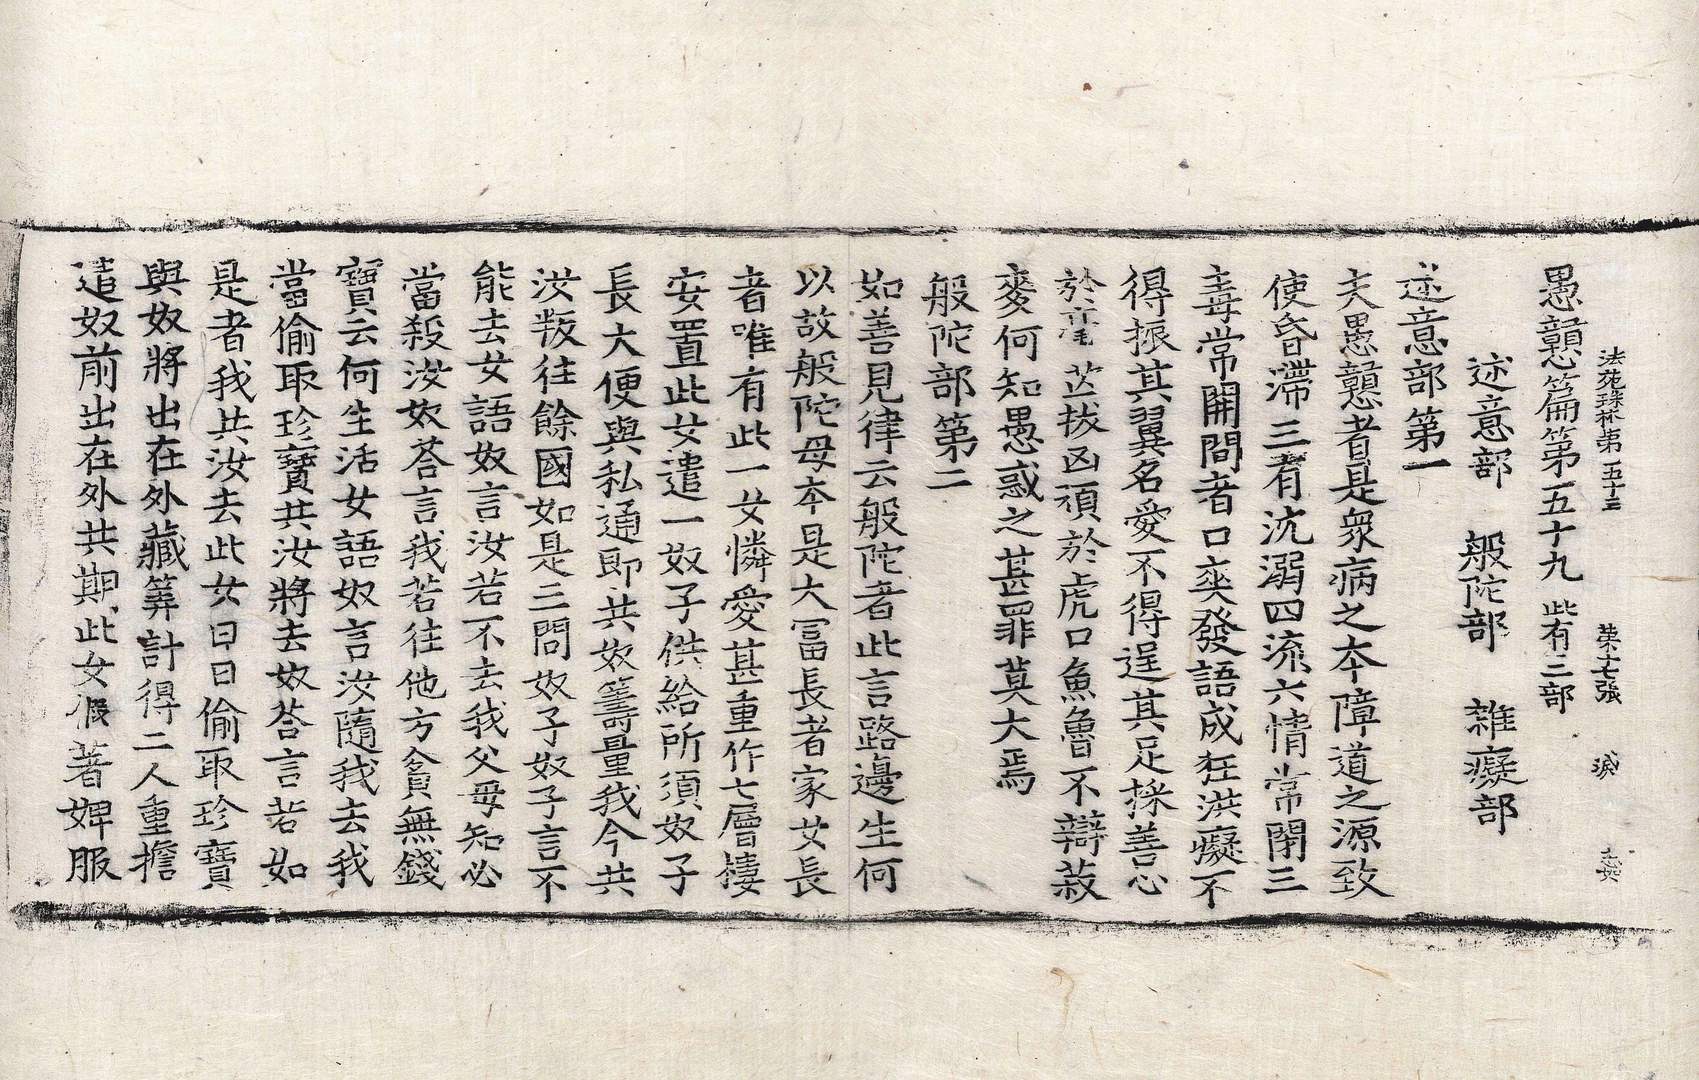 法苑珠林第五十三 第十七張 㳙
愚戇篇第五十九 此有三部
述意部 般陀部 雜癡部
述意部第一
夫愚戇者是衆病之本障道之源致
使昏滯三有沈溺四流六情常閉三
毒常開闇者口爽發語成狂洪癡不
得振其翼名愛不得逞其足採善心
於毫芒拔凶頑於虎口魚魯不辯菽
麥何知愚惑之甚罪莫大焉
般陀部第二
如善見律云般陀者此言路邊生何
以故般陀母本是大冨長者家女長
者唯有此一女憐愛甚重作七層樓
安置此女遣一奴子供給所須奴子
長大便與私通即共奴籌量我今共
汝叛往餘國如是三問奴子奴子言不
能去女語奴言汝若不去我父母知必
當殺汝奴荅言我若往他方貧無錢
寶云何生活女語奴言汝隨我去我
當偷取珍寶共汝將去奴荅言若如
是者我共汝去此女日日偷取珍寶
與奴將出在外藏筭計得二人重擔
遣奴前出在外共期此女假著婢服